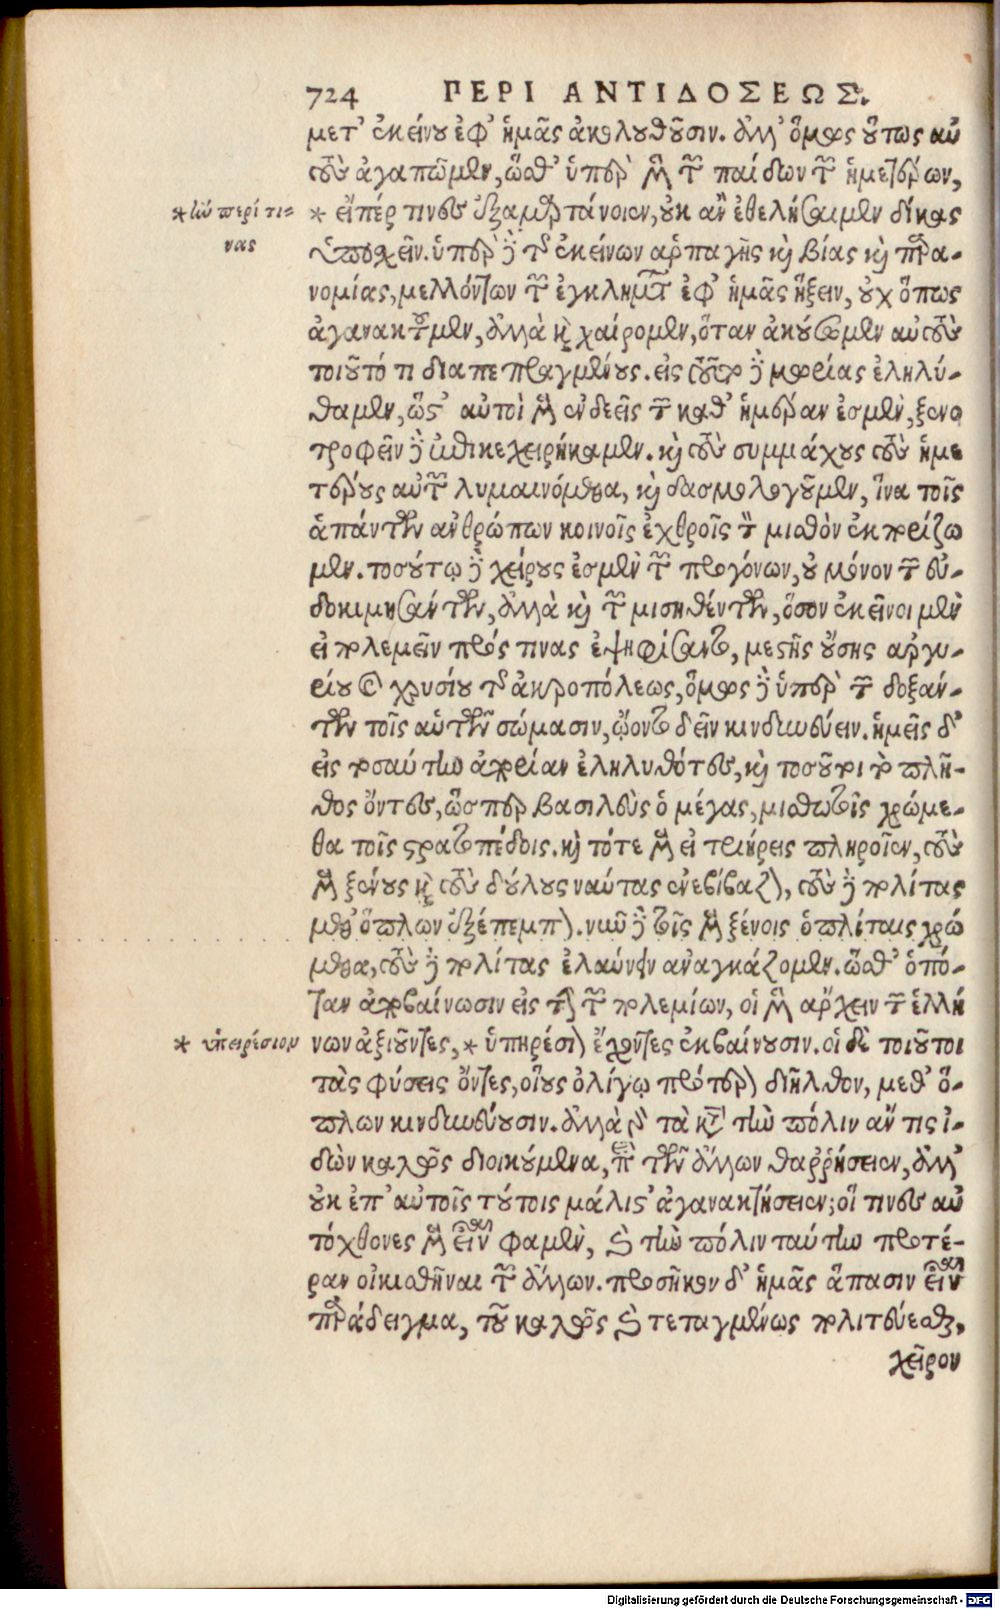 724 ΠΕΡΙ ΑΝΤΙΔΟΣΕΩΣ.
μετ' ἐκείνου ἐφ' ἡμᾶς ἀκολουθοῦσιν. ἀλλ' ὅμως οὕτως αὐ
τοὺς ἀγαπῶμεν, ὥσθ' ὑπὲρ μὲν τῶν παίδων τῶν ἡμετέρων,
*ἢν περί τι-
νας
* εἴπέρ τινες ἐξαμαρτάνοιεν, οὐκ ἂν ἐθελήσαιμεν δίκας
ὑποσχεῖν. ὑπὲρ δὲ τῆς ἐκείνων ἁρπαγῆς καὶ βίας καὶ παρα-
νομίας, μελλόντων τῶν ἐγκλημάτων ἐφ' ἡμᾶς ἥξειν, οὐχ ὅπως
ἀγανακτοῦμεν, ἀλλὰ καὶ χαίρομεν, ὅταν ἀκούσωμεν αὐτοὺς
τοιοῦτό τι διαπεπραγμένους. εἰς τοῦτο δὲ μωρίας ἐληλύ-
θαμεν, ὥστ' αὐτοὶ μὲν ἐνδεεῖς τῶν καθ' ἡμέραν ἐσμὲν, ξενο
τροφεῖν δὲ ἐπικεχειρήκαμεν. καὶ τοὺς συμμάχους τοὺς ἡμε
τέρους αὐτῶν λυμαινόμεθα, καὶ δασμολογοῦμεν, ἵνα τοῖς
ἁπάντων ἀνθρώπων κοινοῖς ἐχθροῖς τὸν μισθὸν ἐκπορίζω
μεν. τοσούτῳ δὲ χείρους ἐσμὲν τῶν προγόνων, οὐ μόνον τῶν εὐ-
δοκιμησάντων, ἀλλὰ καὶ τῶν μισηθέντων, ὅσον ἐκεῖνοι μὲν
εἰ πολεμεῖν πρός τινας ἐψηφίσαντο, μεστῆς οὔσης ἀργυ-
ρίου καὶ χρυσίου τῆς ἀκροπόλεως, ὅμως δὲ ὑπὲρ τῶν δοξάν-
των τοῖς αὑτῶν σώμασιν, ᾤοντο δεῖν κινδυνεύειν. ἡμεῖς δ'
εἰς τοσαύτην ἀπορίαν ἐληλυθότες, καὶ τοσοῦτοι τὸ πλῆ-
θος ὄντες, ὥσπερ βασιλεὺς ὁ μέγας, μισθωτοῖς χρώμε-
θα τοῖς στρατοπέδοις. καὶ τότε μὲν εἰ τριήρεις πληροῖεν, τοὺς
μὲν ξένους καὶ τοὺς δούλους ναύτας ἐνεβίβαζον, τοὺς δὲ πολίτας
μεθ' ὅπλων ἐξέπεμπον. νῦν δὲ τοῖς μὲν ξένοις ὁπλίταις χρώ
μεθα, τοὺς δὲ πολίτας ἐλαύνειν ἀναγκάζομεν. ὥσθ' ὁπό-
ταν ἀποβαίνωσιν εἰς τὴν τῶν πολεμίων, οἱ μὲν ἄρχειν τῶν ἑλλή
* ὑπειρέσιον
νων ἀξιοῦντες, * ὑπηρέσιον ἔχοντες ἐκβαίνουσιν. οἱ δὲ τοιοῦτοι
τὰς φύσεις ὄντες, οἵους ὀλίγῳ πρότερον διῆλθον, μεθ' ὅ-
πλων κινδυνεύουσιν. ἀλλὰ γὰρ τὰ κατὰ τὴν πόλιν ἄν τις ἰ-
δὼν καλῶς διοικούμενα, περὶ τῶν ἄλλων θαῤῥήσειεν, ἀλλ'
οὐκ ἐπ' αὐτοῖς τούτοις μάλιστ' ἀγανακτήσειεν; οἵ τινες αὐ
τόχθονες μὲν εἶναι φαμὲν, καὶ τὴν πόλιν ταύτην προτέ-
ραν οἰκισθῆναι τῶν ἄλλων. προσῆκον δ' ἡμᾶς ἅπασιν εἶναι
παράδειγμα, τοῦ καλῶς καὶ τεταγμένως πολιτεύεσθαι,
χεῖρον
Digitalisierung gefördert durch die Deutsche Forschungsgemeinschaft - DFG